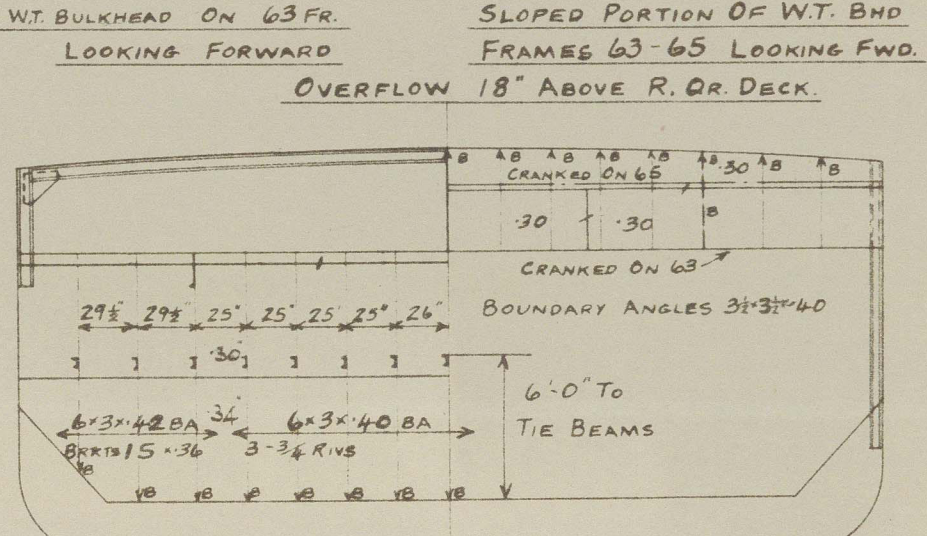 W.T. BULKHEAD ON 63 FR.
LOOKING FORWARD
SLOPED PORTION OF W.T. BHD
FRAMES 63-65 LOOKING FWD.
OVERFLOW 18" ABOVE R. QR. DECK.
B B B B B B ·30 B B
CRANKED ON 65
·30 ·30 B
CRANKED ON 63
29½" 29½" 25" 25" 25" 25" 26"
BOUNDARY ANGLES 3½×3½×·40
·30"
6'-0" TO
TIE BEAMS
6×3×·42 BA ·34" 6×3×·40 BA
BRKTS 15 × ·36 3-¾ RIVS
B
B B B B B B B